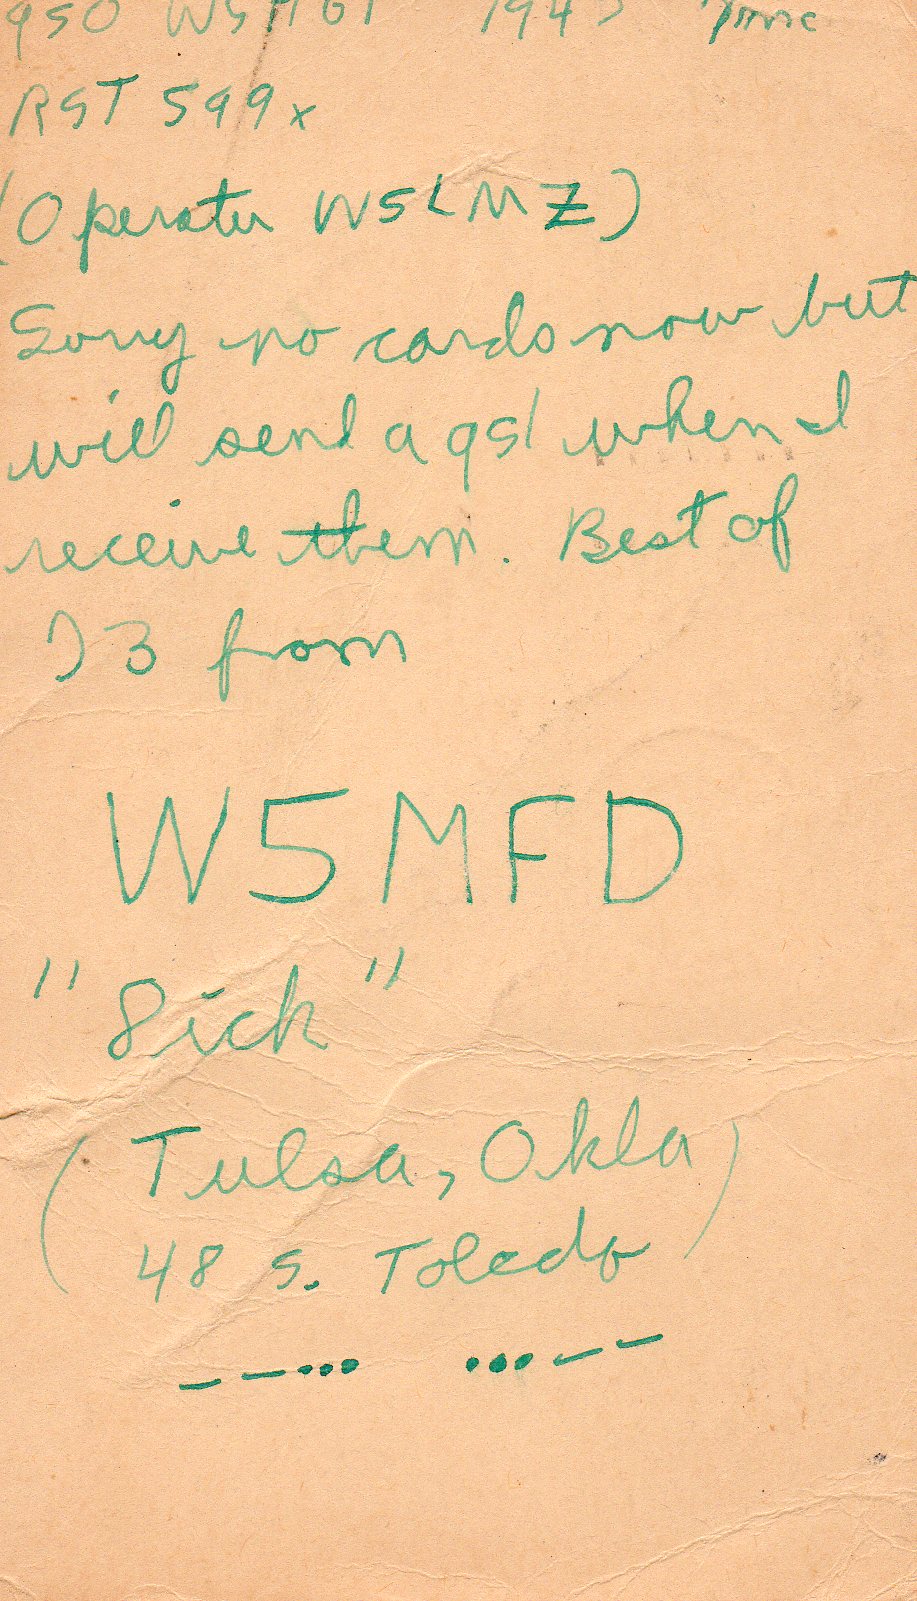 RST 599x
(Operater W5LMZ)
Sorry no cards now but
will send a qsl when I
receive them. Best of
73 from
W5MFD
"Dick"
(Tulsa, Okla)
48 S. Toledo
– – • • •   • • • – –